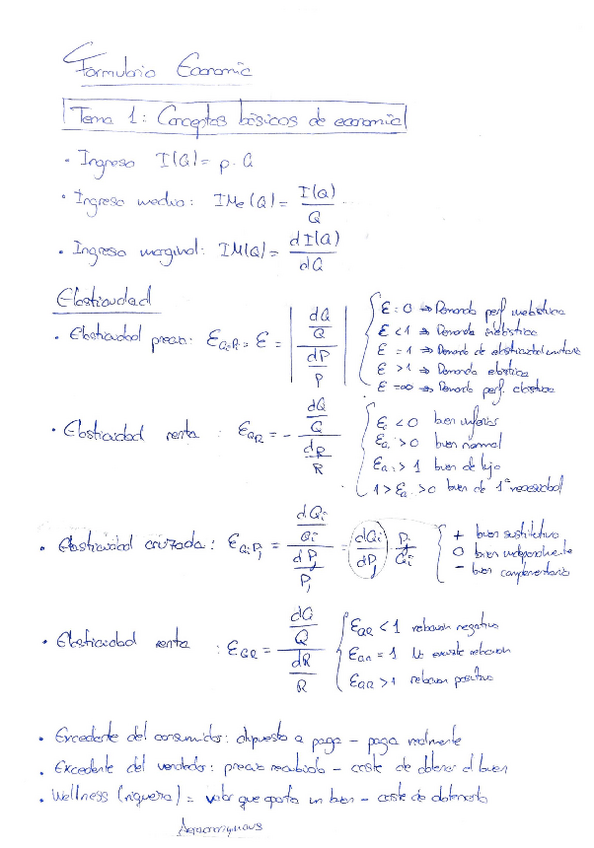 Formulario Economic
Tema 1: Conceptos básicos de economia
• Ingreso I(Q) = p·Q
• Ingreso medio: IMe(Q) = I(Q) / Q
• Ingreso marginal: IM(Q) = dI(Q) / dQ
Elasticidad
• Elasticidad precio: E_{Q,P} = E = | (dQ/Q) / (dP/P) |
E = 0 ⇒ Demanda perf inelástica
E < 1 ⇒ Demanda inelástica
E = 1 ⇒ Demanda de elasticidad unitaria
E > 1 ⇒ Demanda elástica
E = ∞ ⇒ Demanda perf. elástica
• Elasticidad renta : E_{QR} = - (dQ/Q) / (dR/R)
E < 0 bien inferior
E_{Q} > 0 bien normal
E_{Q} > 1 bien de lujo
1 > E_{Q} > 0 bien de 1ª necesidad
• Elasticidad cruzada: E_{QiPj} = (dQi/Qi) / (dPj/Pj) = dQi/dPj Pj/Qi
+ bien sustitutivo
0 bien independiente
- bien complementario
• Elasticidad renta : E_{QR} = (dQ/Q) / (dR/R)
E_{QR} < 1 relacion negativa
E_{QR} = 1 existe relacion
E_{QR} > 1 relacion positiva
• Excedente del consumidor: dispuesto a pagar - paga realmente
• Excedente del vendedor: precio recibido - coste de obtener el bien
• Wellness (riqueza) = valor que aporta un bien - coste de obtenerlo